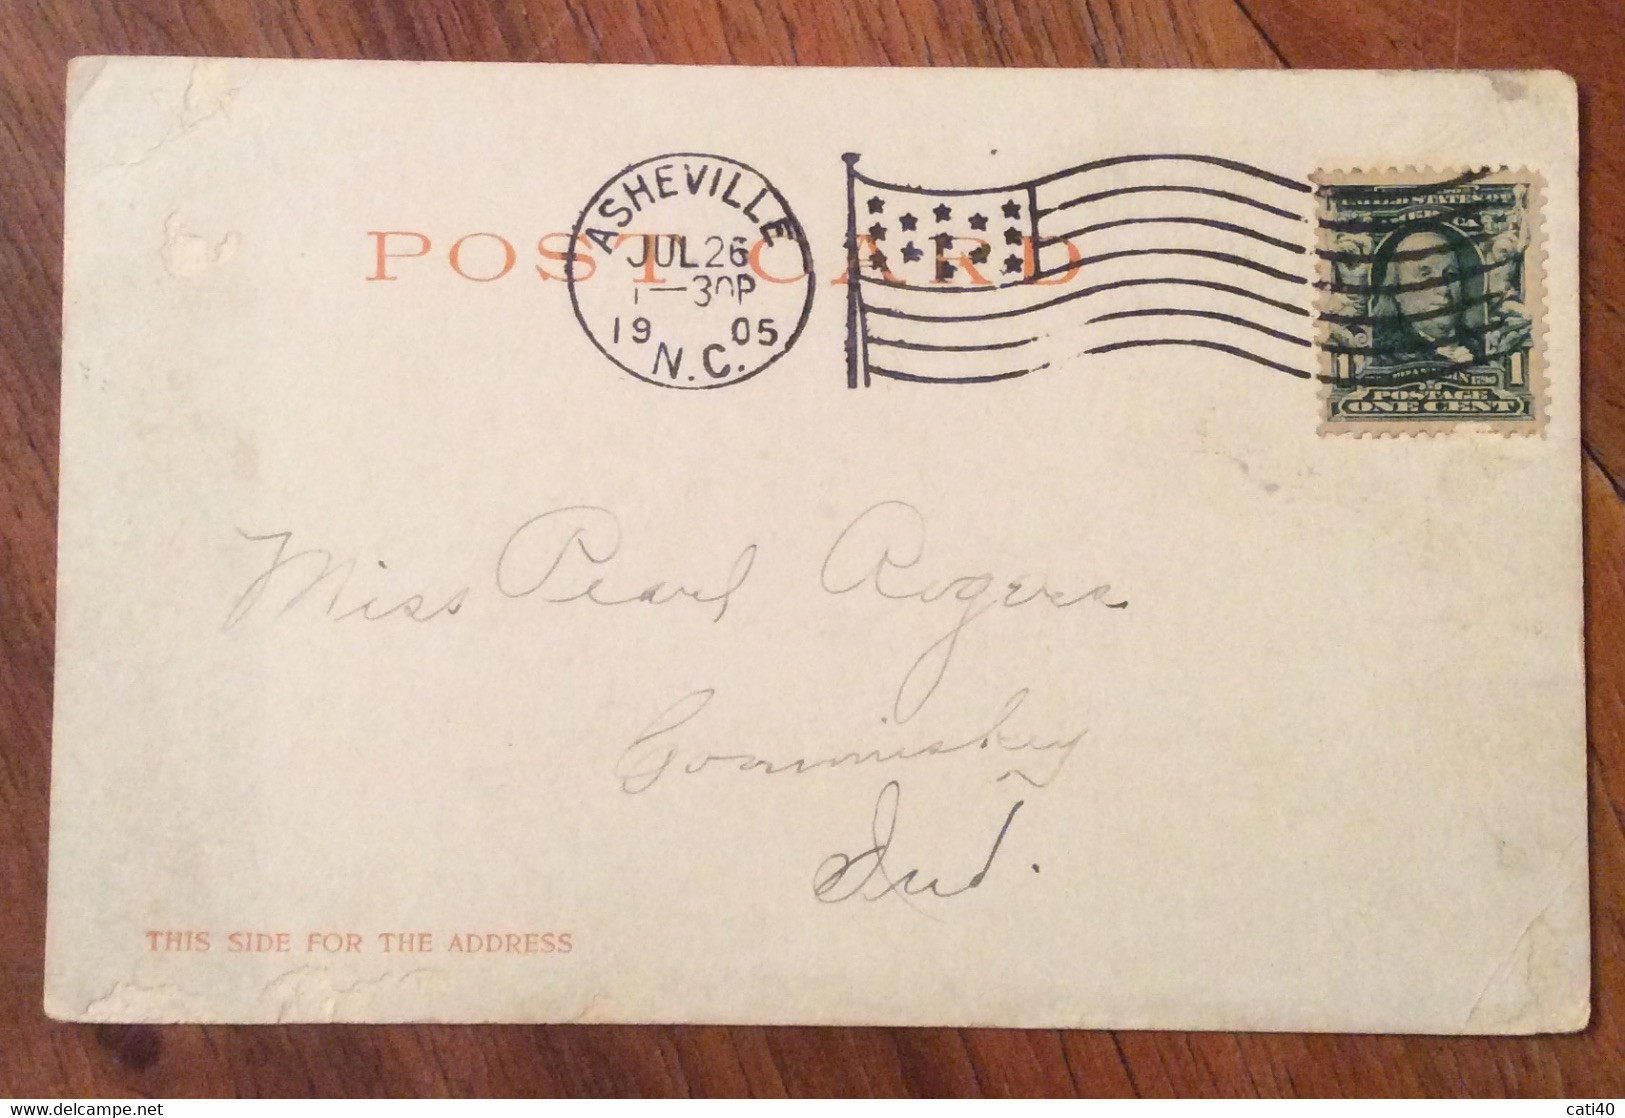 POST CARD
ASHEVILLE
JUL 26
1-30P
19 05
N.C.
UNITED STATES OF
AMERICA
FRANKLIN 1790
1 POSTAGE 1
ONE CENT
Miss Pearl Rogers
Commiskey
Ind.
THIS SIDE FOR THE ADDRESS
cati40